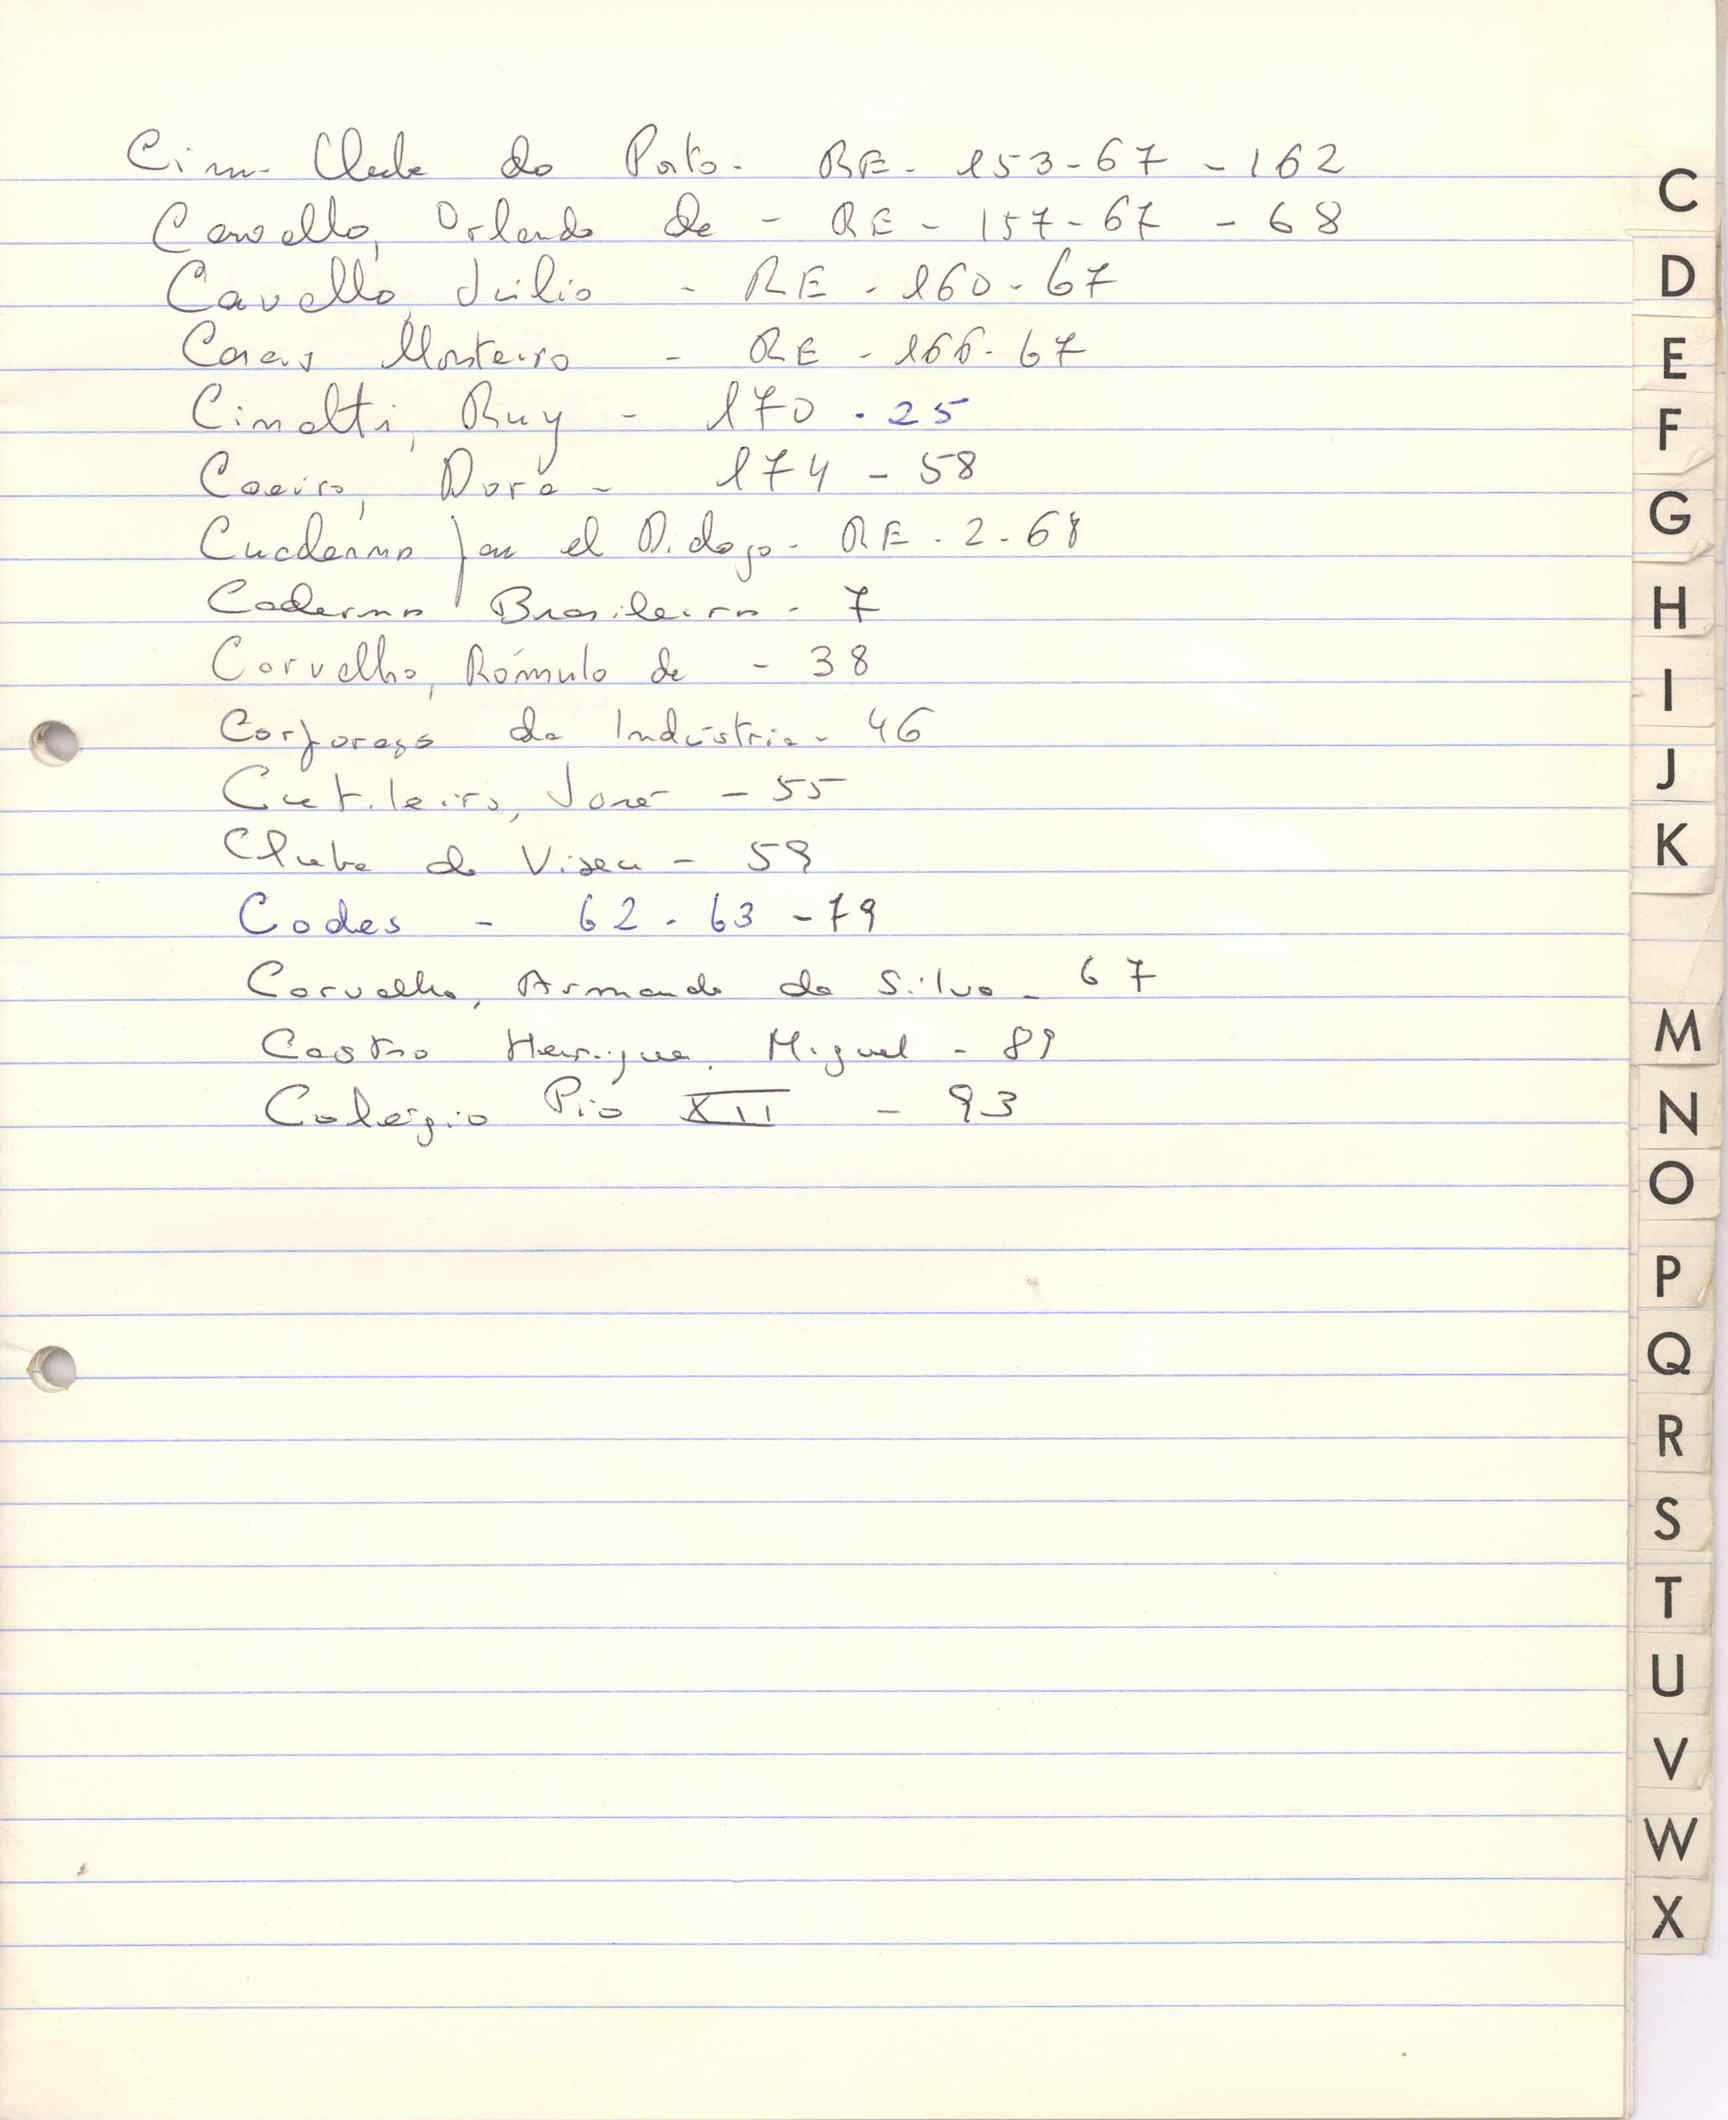 Cine-Clube do Porto - RE - 153-67 - 162
Carvalho, Orlando de - RE - 157-67 - 68
Carvalho, Júlio - RE - 160-67
Casais Monteiro - RE - 166-67
Cinatti, Ruy - 170 - 25
Caeiro, Dora - 174 - 58
Cuadernos para el Dialogo - RE - 2-68
Cadernos Brasileiros - 7
Carvalho, Rómulo de - 38
Corporação da Indústria - 46
Cutileiro, José - 55
Clube de Viseu - 59
Codes - 62 - 63 - 79
Carvalho, Armando da Silva - 67
Castro Henriques, Miguel - 89
Colégio Pio XII - 93
C
D
E
F
G
H
I
J
K
M
N
O
P
Q
R
S
T
U
V
W
X